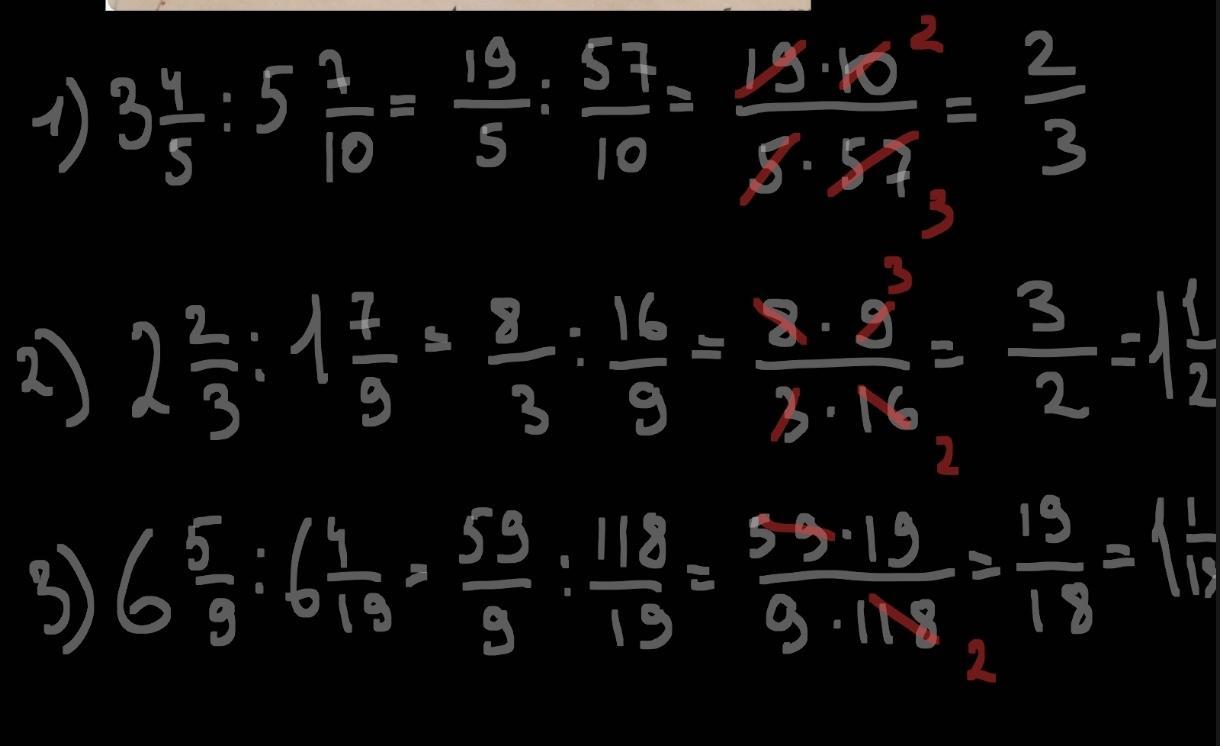 1) 3 4/5 : 5 7/10 = 19/5 : 57/10 = 19·10 2/5·57 3 = 2/3
2) 2 2/3 : 1 7/9 = 8/3 : 16/9 = 8·9 3/3·16 2 = 3/2 = 1 1/2
3) 6 5/9 : 6 4/19 = 59/9 : 118/19 = 59·19/9·118 2 = 19/18 = 1 1/18